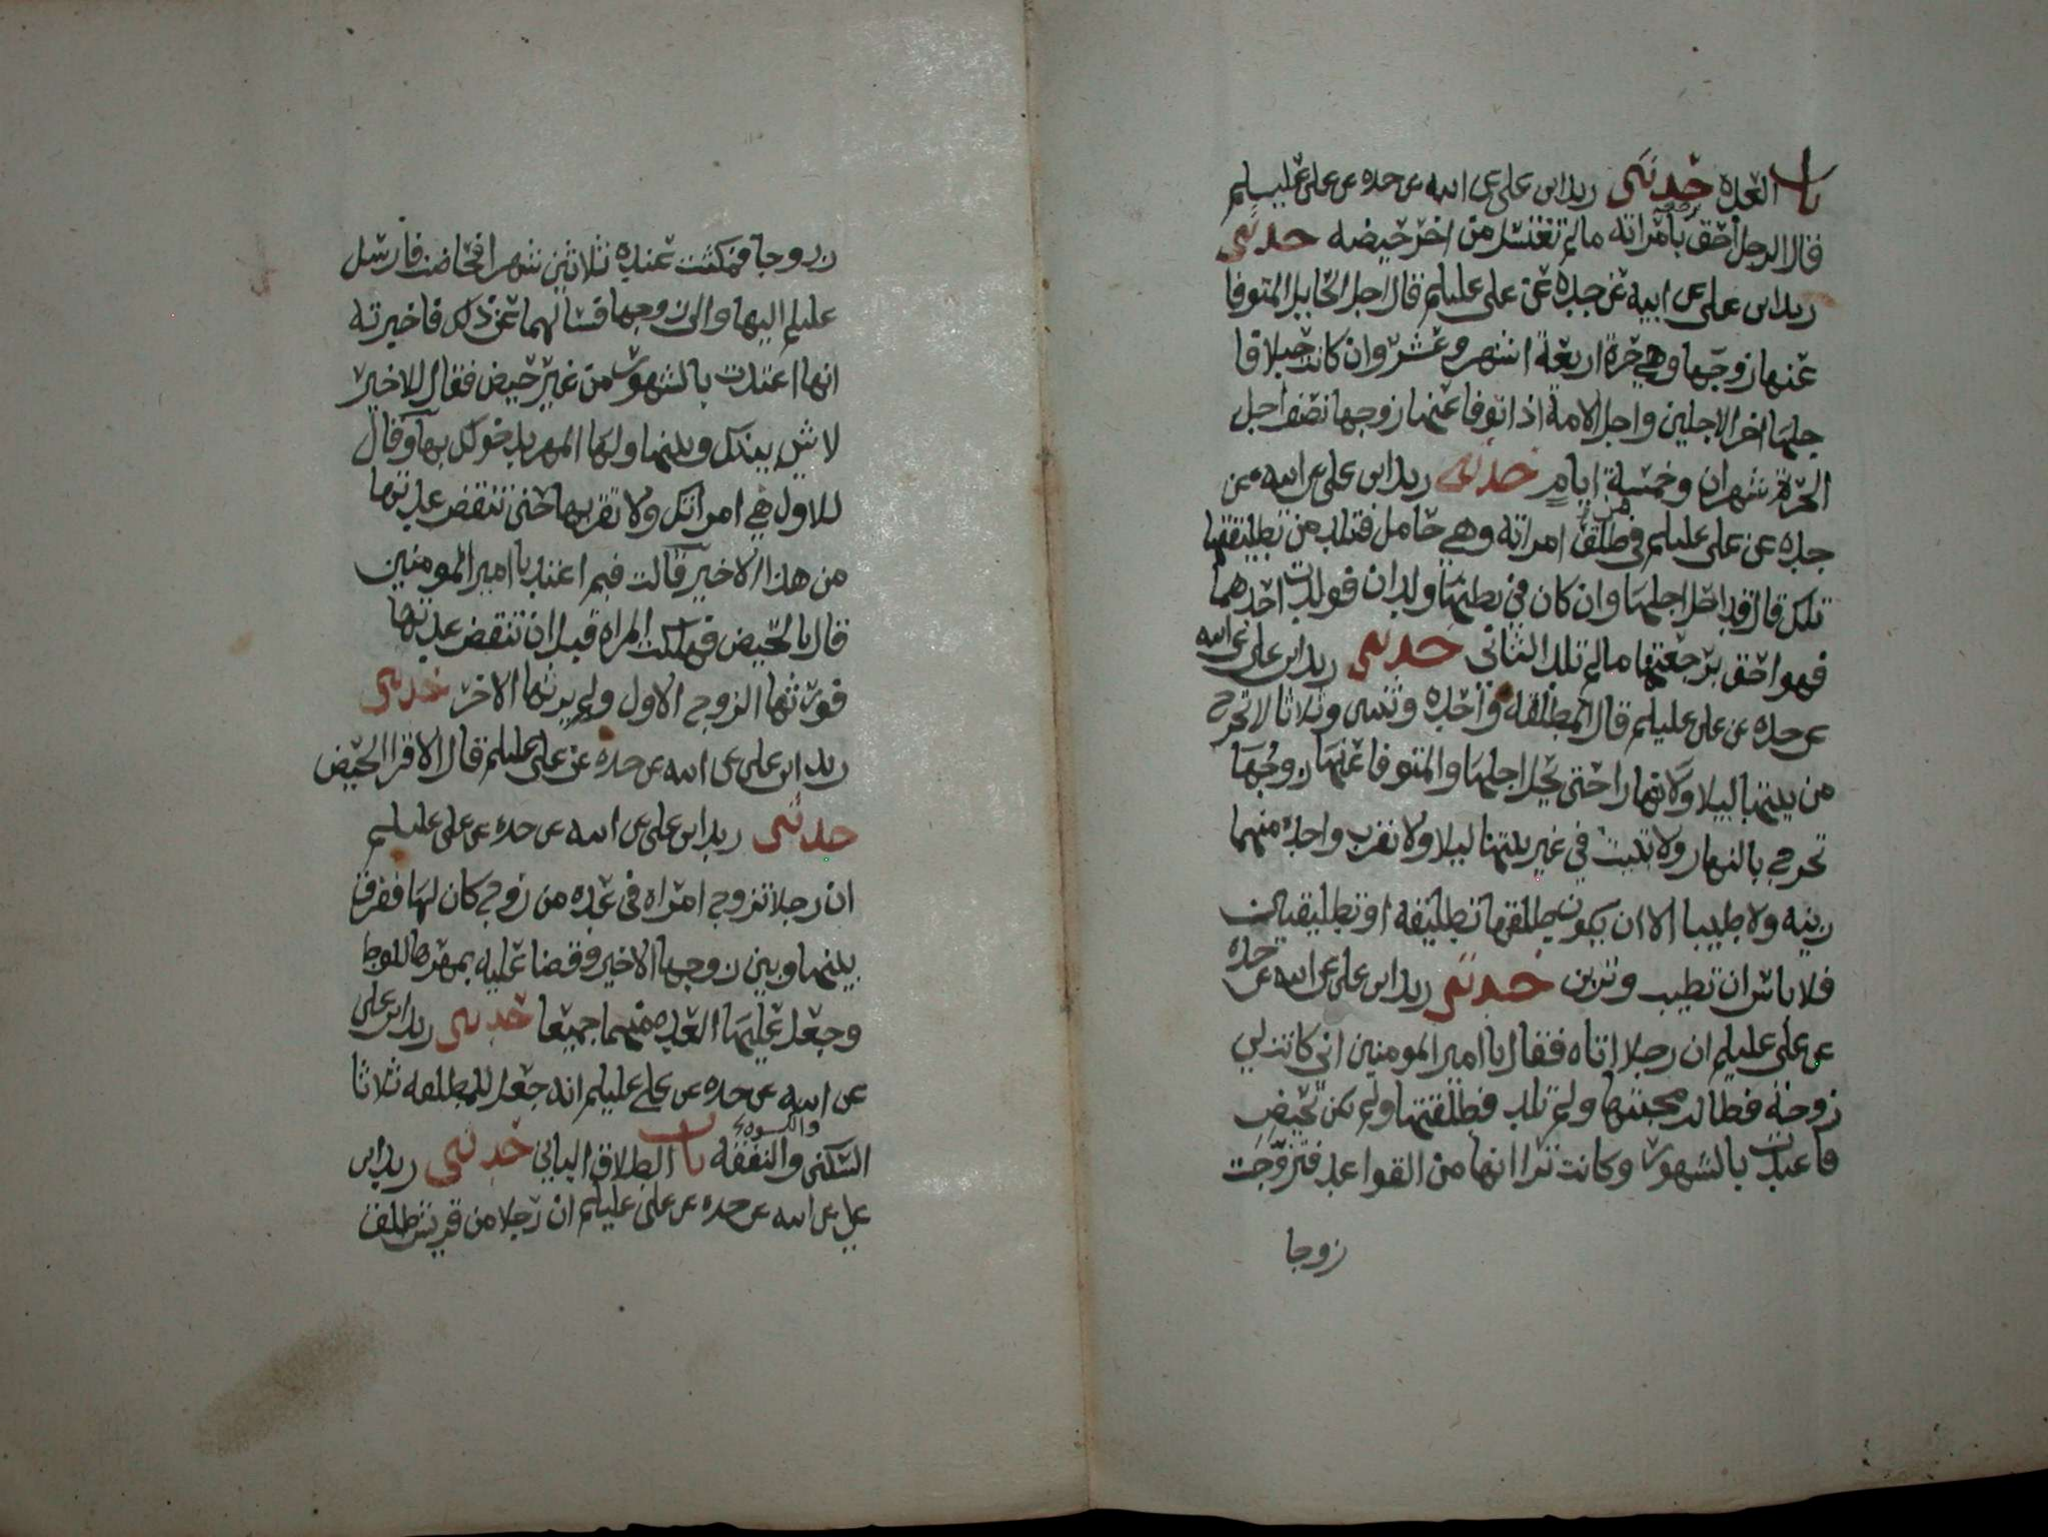 باب العده حدثني زيد ابن علي عن ابيه عن جده عن علي عليسلم
قال الرجل احق برجعة بامراته مالم تغتسل من اخر حيضه حدثني
زيد ابن علي عن ابيه عن جده عن علي عليلم قال اجل الحايل المتوفا
عنها زوجها وهي حرة اربعة اشهر وعشر وان كانت حبلا فا
جلها اخر الاجلين واجل الامة اذا توفا عنها زوجها نصف اجل
الحرة شهران وخمسة ايام حدثني زيد ابن علي عن ابيه عن
جده عن علي عليلم في من طلق امراته وهي حامل فتلد من تطليقتها
تلك قال قد احل اجلها وان كان في بطنها ولدان فولدت احدهما
فهو احق برجعتها مالم تلد الثاني حدثني زيد ابن علي عن ابيه
عن جده عن علي عليلم قال المطلقه واحده وثنتين وثلاثا لا تخرج
من بيتها ليلا ولا نهارا حتى يحل اجلها والمتوفا عنها زوجها
تخرج بالنهار ولا تبيت في غير بيتها ليلا ولا تقرب واحده منهما
زينه ولا طيبا الا ان يكون يطلقها تطليقه او تطليقتين
فلا باس ان تطيب وتزين حدثني زيد ابن علي عن ابيه عن جده
عن علي عليلم ان رجلا اتاه فقال يا امير المومنين اني كانت لي
زوجة فطالت صحبتها ولم تلد فطلقتها ولم تكن تحيض
فاعتدت بالشهور وكانت ترا انها من القواعد فتزوجت
زوجا
زوجا فمكثت عنده ثلاثين شهرا فحاضت فارسل
عليلم اليها والى زوجها فسالهما عن ذلك فاخبرته
انها اعتدت بالشهور من غير حيض فقال للاخير
لا شي بينك وبينها ولها المهر بدخولك بها وقال
للاول هي امراتك ولا تقربها حتى تنقض عدتها
من هذا الاخير قالت فبم اعتد يا امير المومنين
قال بالحيض فهلكت المراه قبل ان تنقض عدتها
فورثها الزوج الاول ولم يرثها الاخر حدثني
زيد ابن علي عن ابيه عن جده عن علي عليلم قال الاقرا الحيض
حدثني زيد ابن علي عن ابيه عن جده عن علي عليلم
ان رجلا تزوج امراه في عده من زوج كان لها ففرق
بينها وبين زوجها الاخير وقضا عليه بمهرها للوطء
وجعل عليها العده منهما جميعا حدثني زيد ابن علي
عن ابيه عن جده عن علي عليلم انه جعل للمطلقه ثلاثا
السكنى والنفقه والكسوه باب الطلاق الباين حدثني زيد ابن
علي عن ابيه عن جده عن علي عليلم ان رجلا من قريش طلق